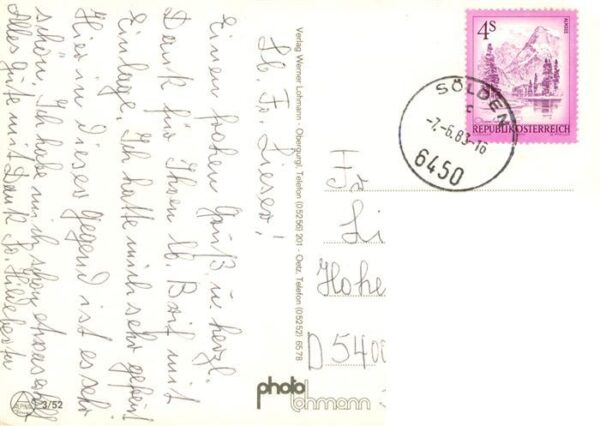 Lb. Fr. Lieser!
Einen frohen Gruß u. herzl.
Dank für Ihren lb. Brief mit
Einlage. Ich hatte mich sehr gefreut
Hier in dieser Gegend ist es sehr
schön. Ich habe mich schon etwas erholt
Alles gute mit Dank
Verlag Werner Lohmann - Obergurgl, Telefon (05256) 201 - Oetz, Telefon (05252) 6578
photo
lohmann
3/52
4s
ALMSEE
REPUBLIK ÖSTERREICH
SÖLDEN
c
-7.-6.83-16
6450
Fr
Li
Hohe
D 5400